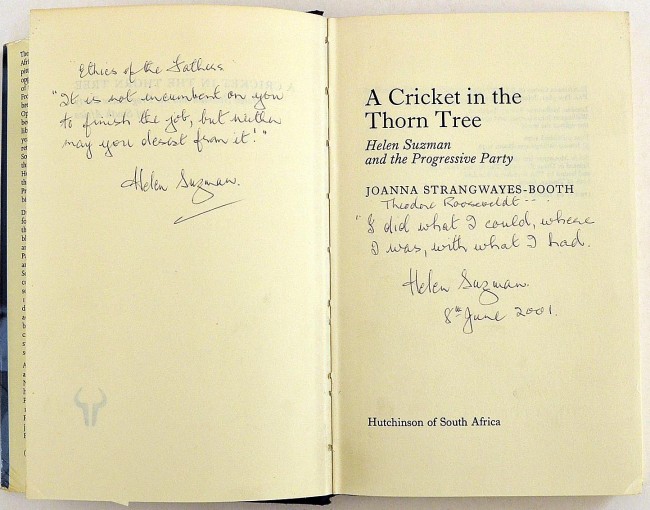 Ethics of the Fathers
"It is not incumbent on you
to finish the job, but neither
may you desist from it!"
Helen Suzman.
A Cricket in the
Thorn Tree
Helen Suzman
and the Progressive Party
JOANNA STRANGWAYES-BOOTH
Theodore Rooseveldt --
"I did what I could, where
I was, with what I had.
Helen Suzman.
8th June 2001.
Hutchinson of South Africa